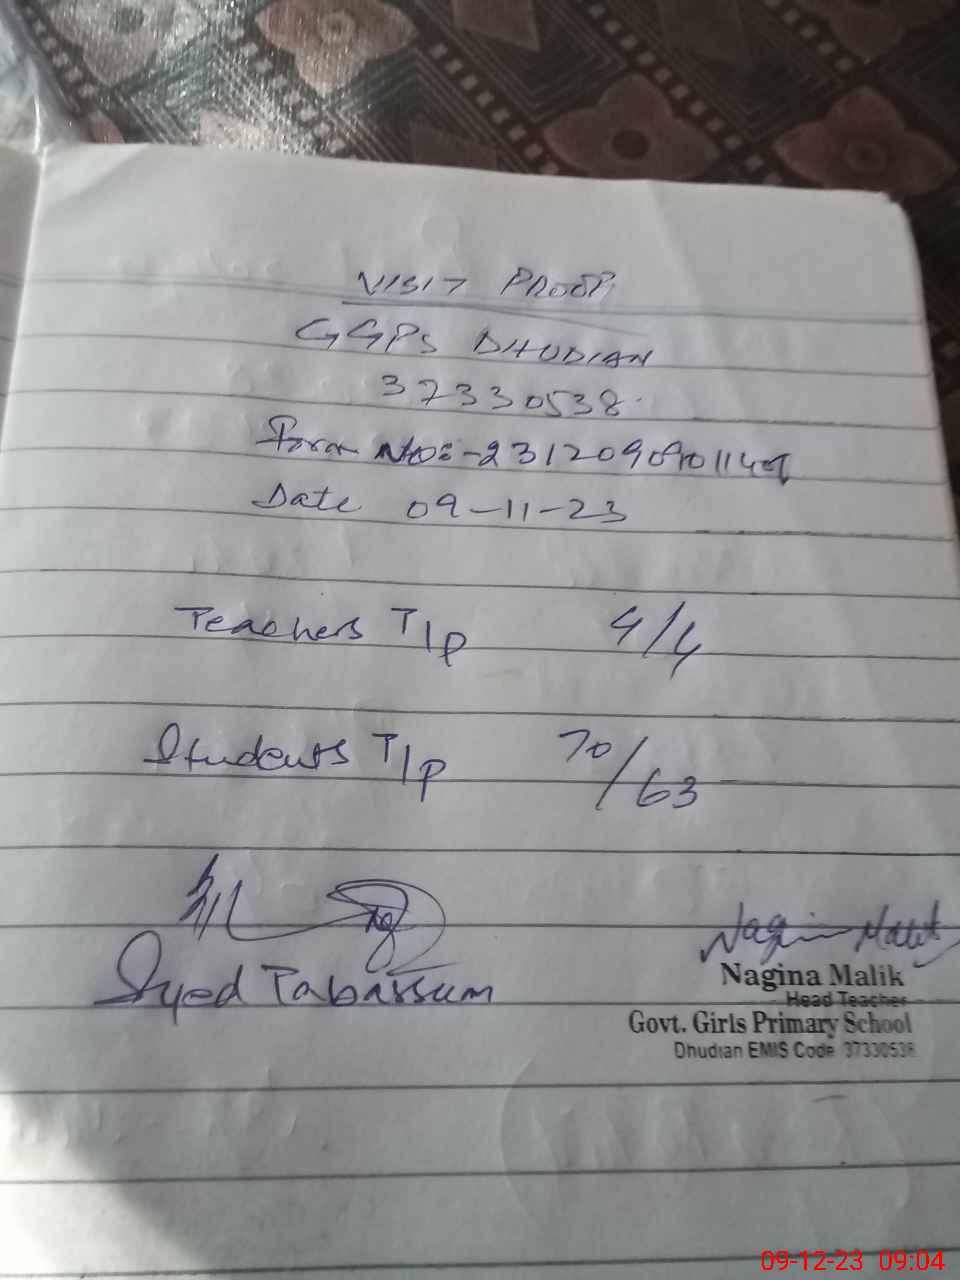 VISIT PROOF
GGPS DHUDIAN
37330538
Form No:-
Date 09-11-23
Teachers T/P 4/4
Students T/P 70/63
Syed Tabassum
Nagina Malik
Nagina Malik
Head Teacher
Govt. Girls Primary School
Dhudian EMIS Code 37330538
09-12-23 09:04